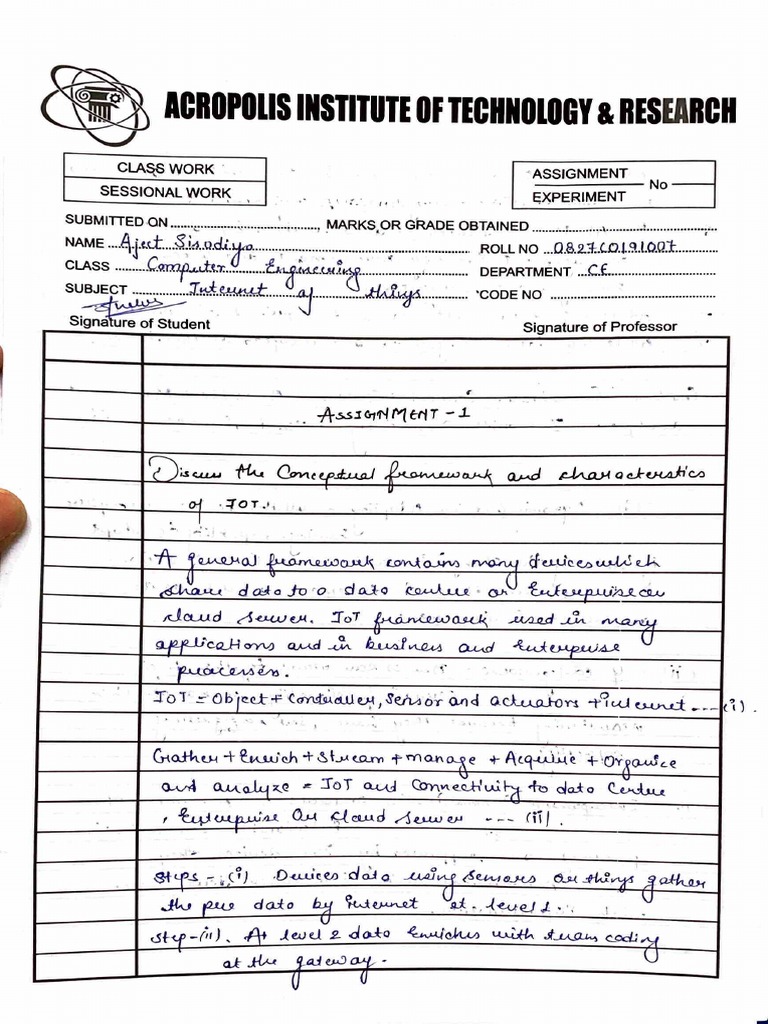 ACROPOLIS INSTITUTE OF TECHNOLOGY & RESEARCH
CLASS WORK
SESSIONAL WORK
ASSIGNMENT
EXPERIMENT No
SUBMITTED ON MARKS OR GRADE OBTAINED
NAME Ajeet Sisodiya ROLL NO 0827CO191007
CLASS Computer Engineering DEPARTMENT CE
SUBJECT Internet of things CODE NO
Signature of Student Signature of Professor
ASSIGNMENT-1
Discuss the Conceptual framework and characterstics
of IOT.
A general framework contains many devices which
share data to a data centre or Enterprise or
cloud server. IoT framework used in many
applications and in business and Enterprise
processes.
IOT = Object + Controller, Sensor and actuators + internet --- (i).
Gather + Enrich + Stream + manage + Acquire + Organice
and analyze = IoT and Connectivity to data Centre
, Enterprise Or cloud server --- (ii).
Steps - (i) Devices data using sensors or things gather
the pre data by internet at level 1.
Step-(ii). At level 2 data Enriches with coding
at the gateway.